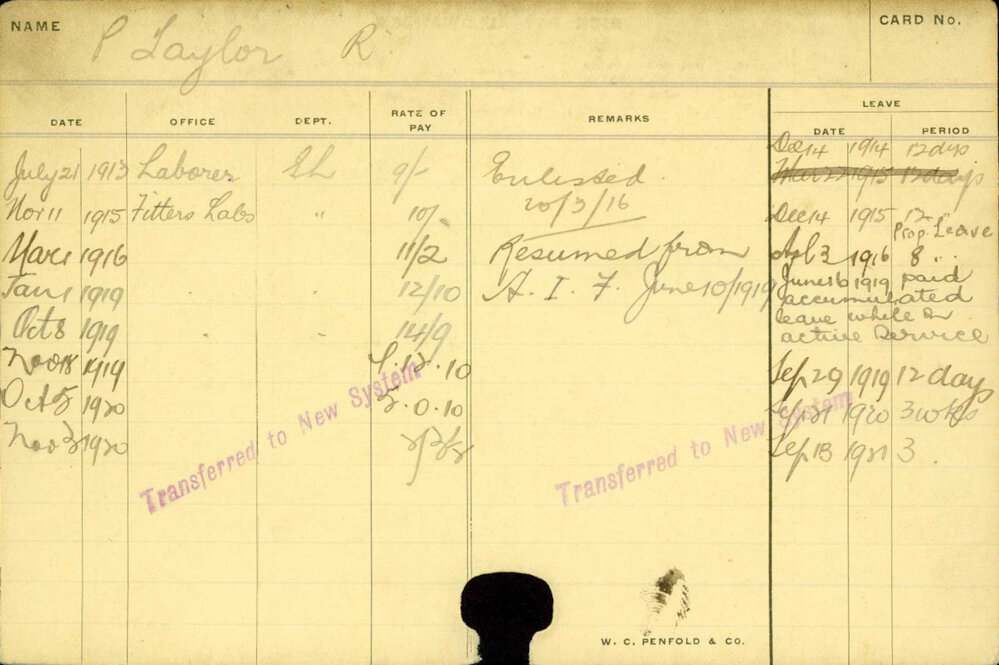 NAME P Taylor R CARD No.
LEAVE
DATE OFFICE DEPT. RATE OF PAY REMARKS DATE PERIOD
Dec 14 1914 12 days
July 21 1913 Laborer EL 9/- Enlisted. Mar 22 1915 12 days
20/3/16
Nov 11 1915 Fitters Labs " 10/- Dec 14 1915 12 "
Prop. Leave
Mar 1 1916 11/2 Resumed from Apl 3 1916 8 "
Jan 1 1919 12/10 A. I. F. June 10/1919 June 16 1919 paid
accumulated
Oct 8 1919 14/9 leave while on
active Service
Nov 18 1919 10 Sep 29 1919 12 days
Oct 5 1920 5.0.10 1920 3 wks
Nov 3 1920 Sep 13 1921 3
Transferred to New System
Transferred to New System
W. C. PENFOLD & CO.